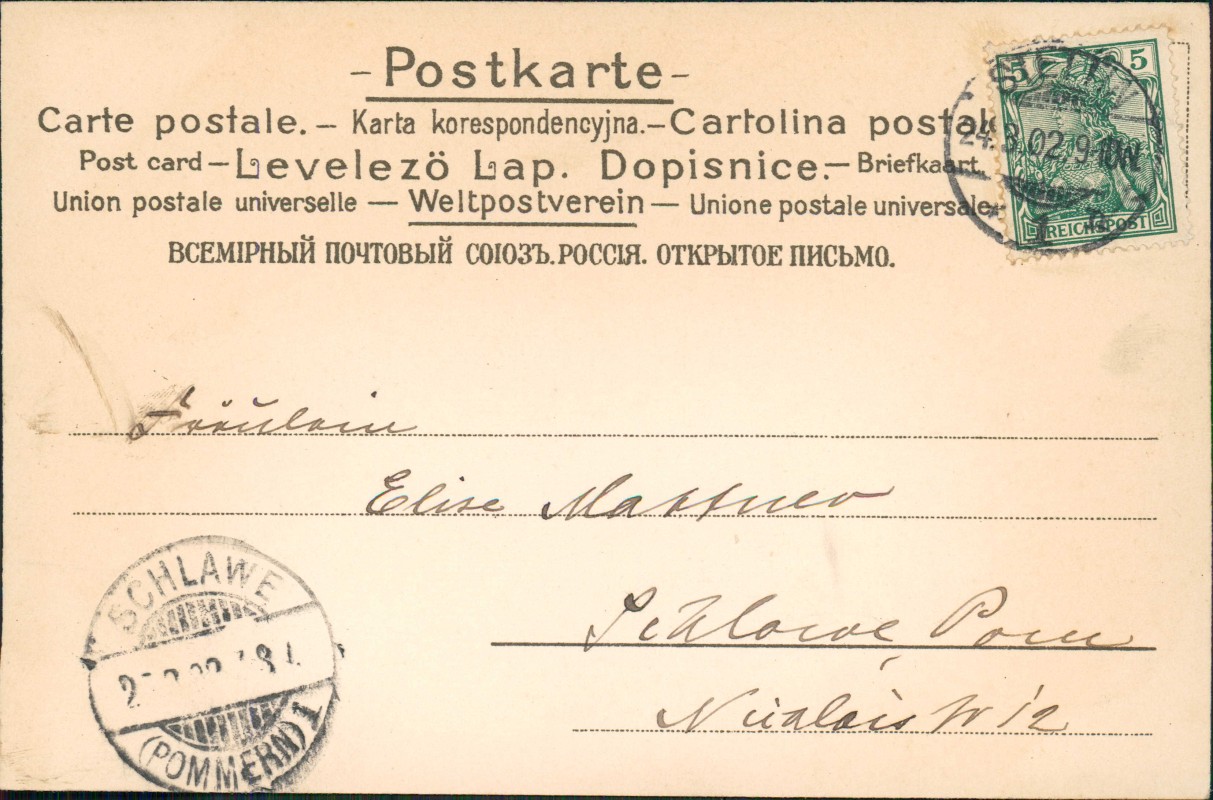 -Postkarte-
Carte postale. – Karta korespondencyjna.–Cartolina postale
Post card – Levelező Lap. Dopisnice. – Briefkaart
Union postale universelle — Weltpostverein — Unione postale universale
ВСЕМІРНЫЙ ПОЧТОВЫЙ СОЮЗЪ. РОССІЯ. ОТКРЫТОЕ ПИСЬМО.
5 5
REICHSPOST
STETTIN
24.3.02.9-10V.
1
Fräulein
Elise Mattner
Schlawe Pom
12
SCHLAWE
(POMMERN) 1